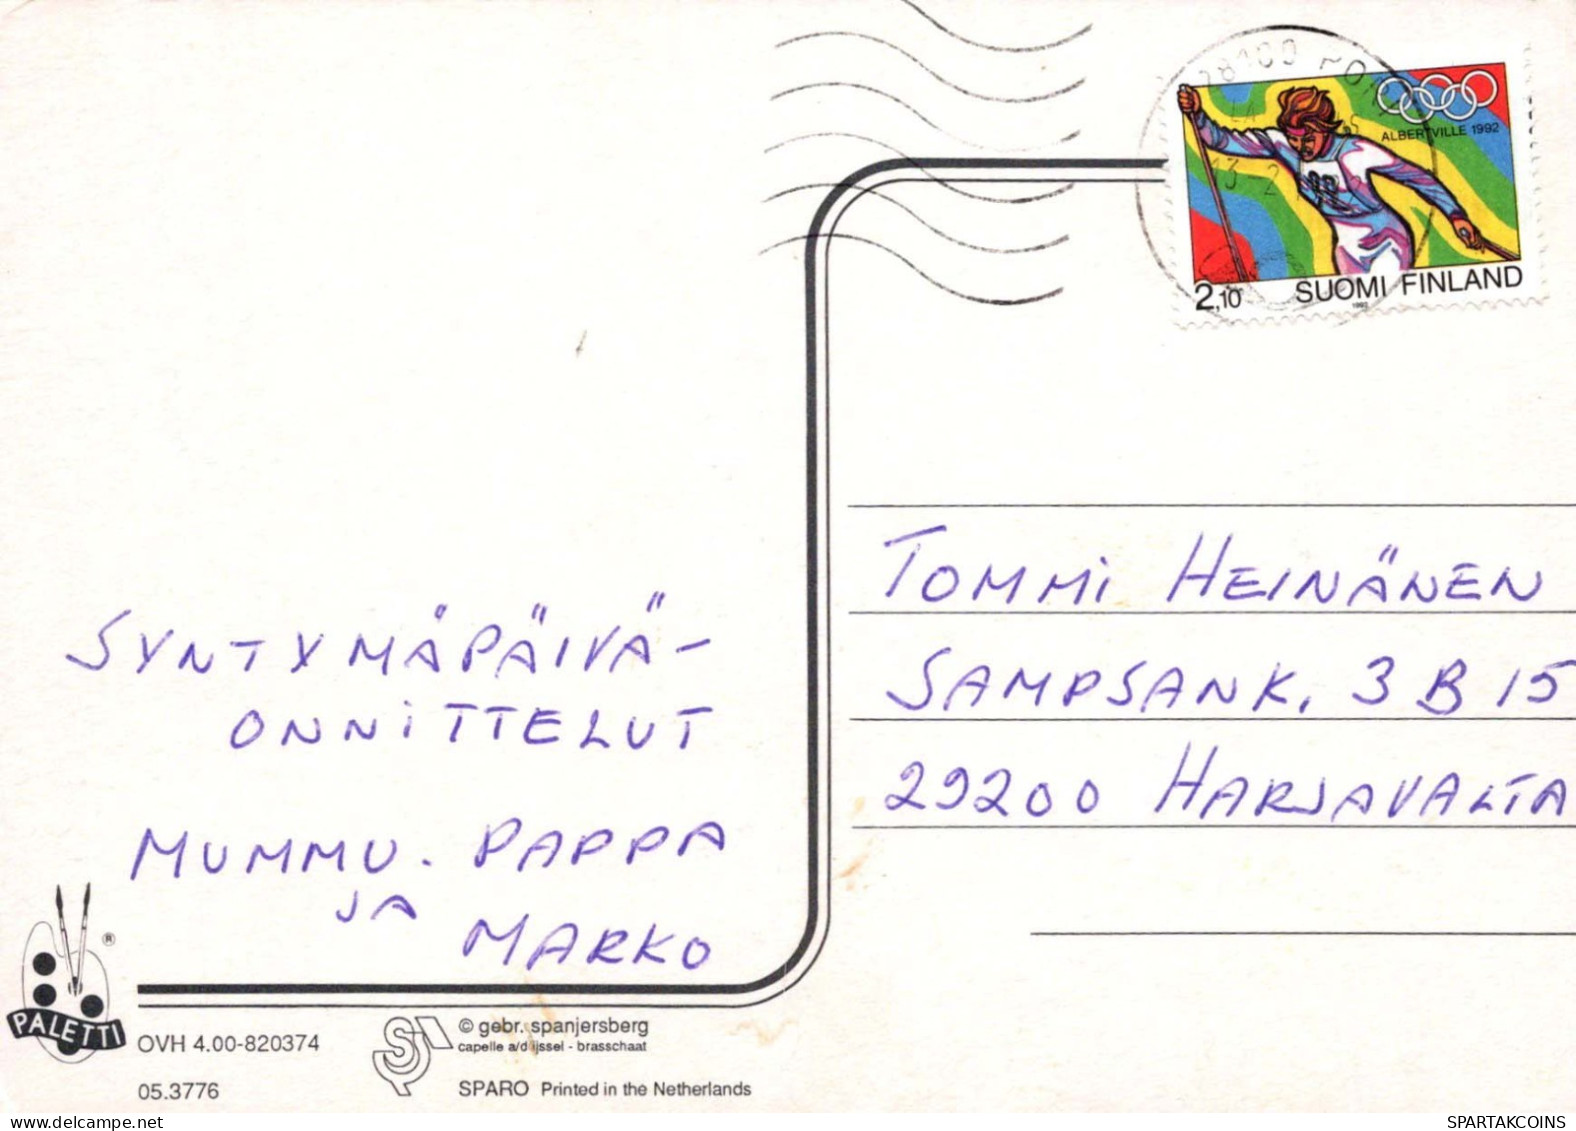 28100 PORI
13. 2.
ALBERTVILLE 1992
2,10 SUOMI FINLAND
1992
SYNTYMÄPÄIVÄ-
ONNITTELUT
MUMMU. PAPPA
JA
MARKO
TOMMI HEINÄNEN
SAMPSANK. 3 B 15
29200 HARJAVALTA
PALETTI ®
OVH 4.00-820374
05.3776
© gebr. spanjersberg
capelle a/d ijssel - brasschaat
SPARO Printed in the Netherlands
SPARTAKCOINS